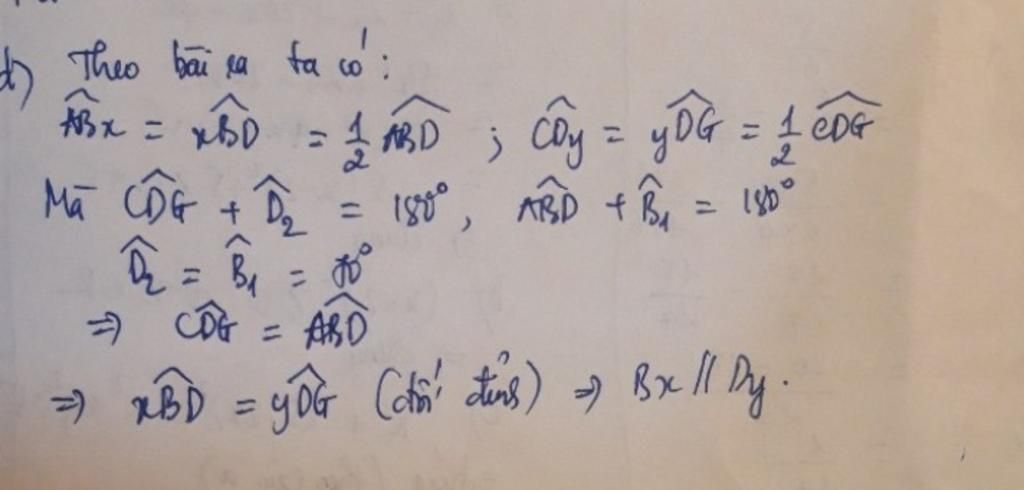 d) Theo bài ra ta có:
$\widehat{ABx} = \widehat{xBD} = \frac{1}{2} \widehat{ABD}$ ; $\widehat{CDy} = \widehat{yDG} = \frac{1}{2} \widehat{CDG}$
Mà $\widehat{CDG} + \widehat{D_2} = 180°$, $\widehat{ABD} + \widehat{B_1} = 180°$
$\widehat{D_2} = \widehat{B_1} = 70°$
⇒ $\widehat{CDG} = \widehat{ABD}$
⇒ $\widehat{xBD} = \widehat{yDG}$ (đối đỉnh) ⇒ Bx // Dy.